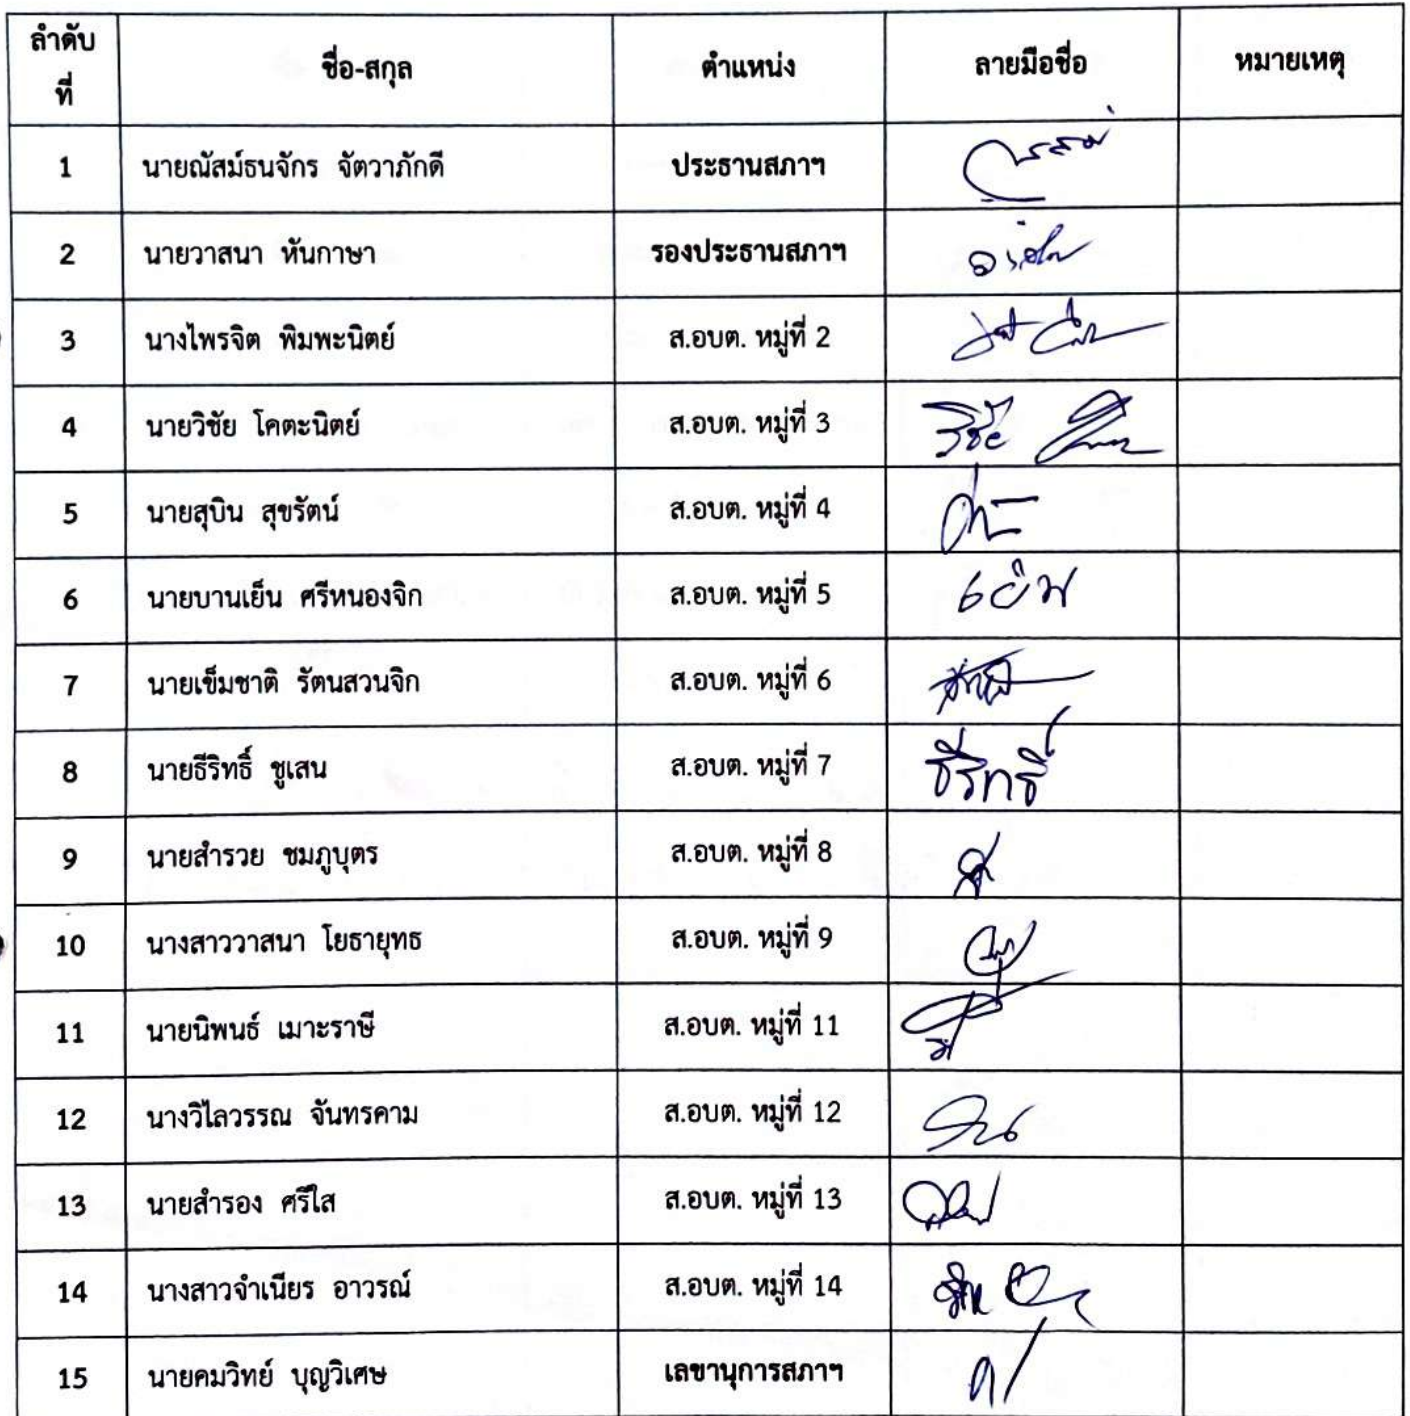 ลำดับที่ ชื่อ-สกุล ตำแหน่ง ลายมือชื่อ หมายเหตุ
1 นายณัสม์ธนจักร จัตวาภักดี ประธานสภาฯ
2 นายวาสนา หันกาษา รองประธานสภาฯ
3 นางไพรจิต พิมพะนิตย์ ส.อบต. หมู่ที่ 2
4 นายวิชัย โคตะนิตย์ ส.อบต. หมู่ที่ 3 วิชัย
5 นายสุบิน สุขรัตน์ ส.อบต. หมู่ที่ 4
6 นายบานเย็น ศรีหนองจิก ส.อบต. หมู่ที่ 5
7 นายเข็มชาติ รัตนสวนจิก ส.อบต. หมู่ที่ 6
8 นายธีริทธิ์ ชูเสน ส.อบต. หมู่ที่ 7 ธีริทธิ์
9 นายสำรวย ชมภูบุตร ส.อบต. หมู่ที่ 8
10 นางสาววาสนา โยธายุทธ ส.อบต. หมู่ที่ 9
11 นายนิพนธ์ เมาะราษี ส.อบต. หมู่ที่ 11
12 นางวิไลวรรณ จันทรคาม ส.อบต. หมู่ที่ 12
13 นายสำรอง ศรีใส ส.อบต. หมู่ที่ 13
14 นางสาวจำเนียร อาวรณ์ ส.อบต. หมู่ที่ 14
15 นายคมวิทย์ บุญวิเศษ เลขานุการสภาฯ